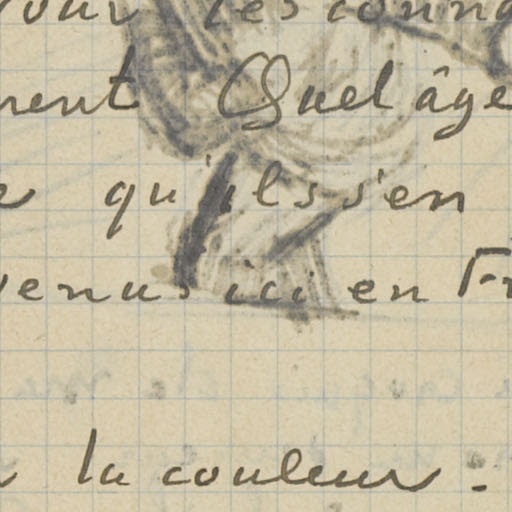 pour les conna
ment Quel âge
qu'ils s'en
venus ici en Fr
la couleur.